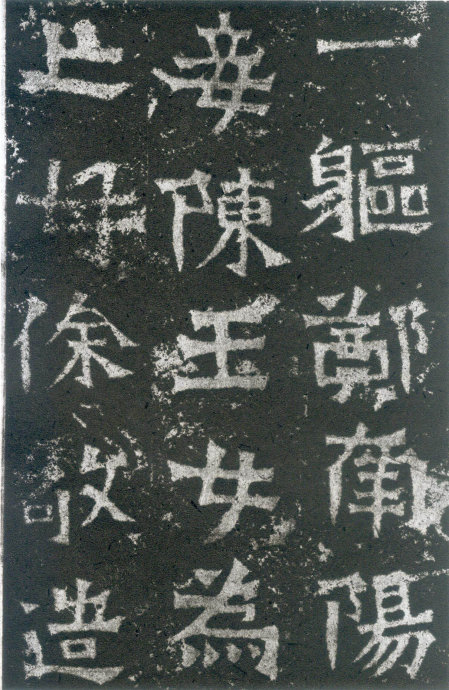 一軀鄭南陽
妾陳玉女為
亡母徐敬造